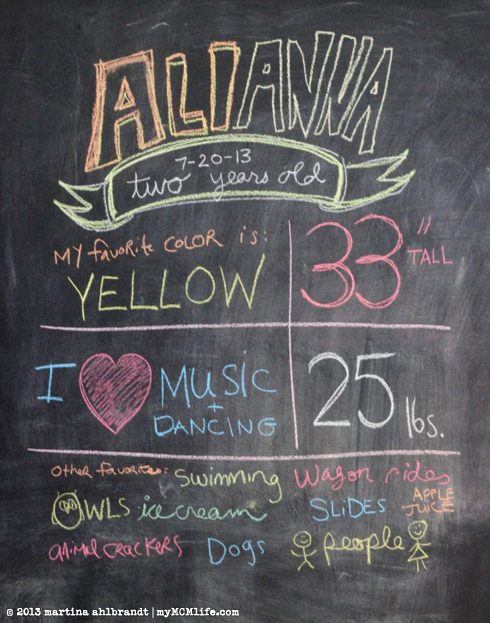 ALIANNA
7-20-13
two years old
My favorite COLOR is:
YELLOW
33" TALL
I MUSIC
+
DANCING
25 lbs.
Other favorites: Swimming Wagon rides
OWLS ice cream SLIDES APPLE
JUICE
animal crackers Dogs people
© 2013 martina ahlbrandt | myMCMlife.com